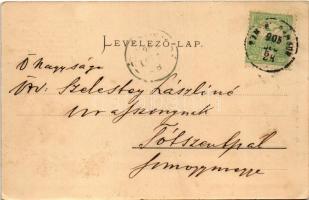 LEVELEZŐ-LAP.
905
Ő nagysága
Özv. Szelestey Lászlóné
úr asszonynak
Tótszentpál
Somogymegye